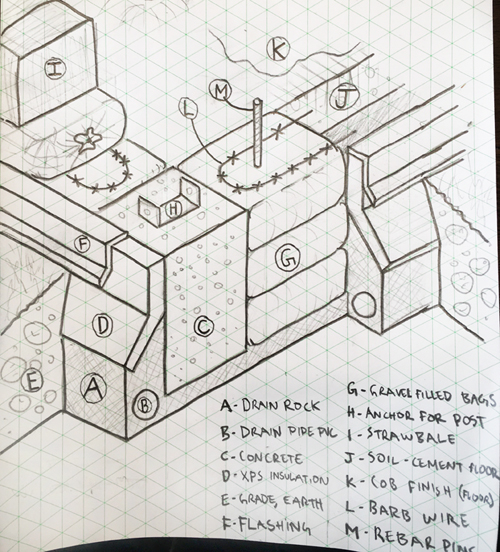 K
I
M
J
L
H
F
G
D
C
E
A
B
A - DRAIN ROCK
B - DRAIN PIPE PVC
C - CONCRETE
D - XPS INSULATION
E - GRADE, EARTH
F - FLASHING
G - GRAVEL FILLED BAGS
H - ANCHOR FOR POST
I - STRAWBALE
J - SOIL - CEMENT FLOOR
K - COB FINISH (FLOOR)
L - BARB WIRE
M - REBAR PINS